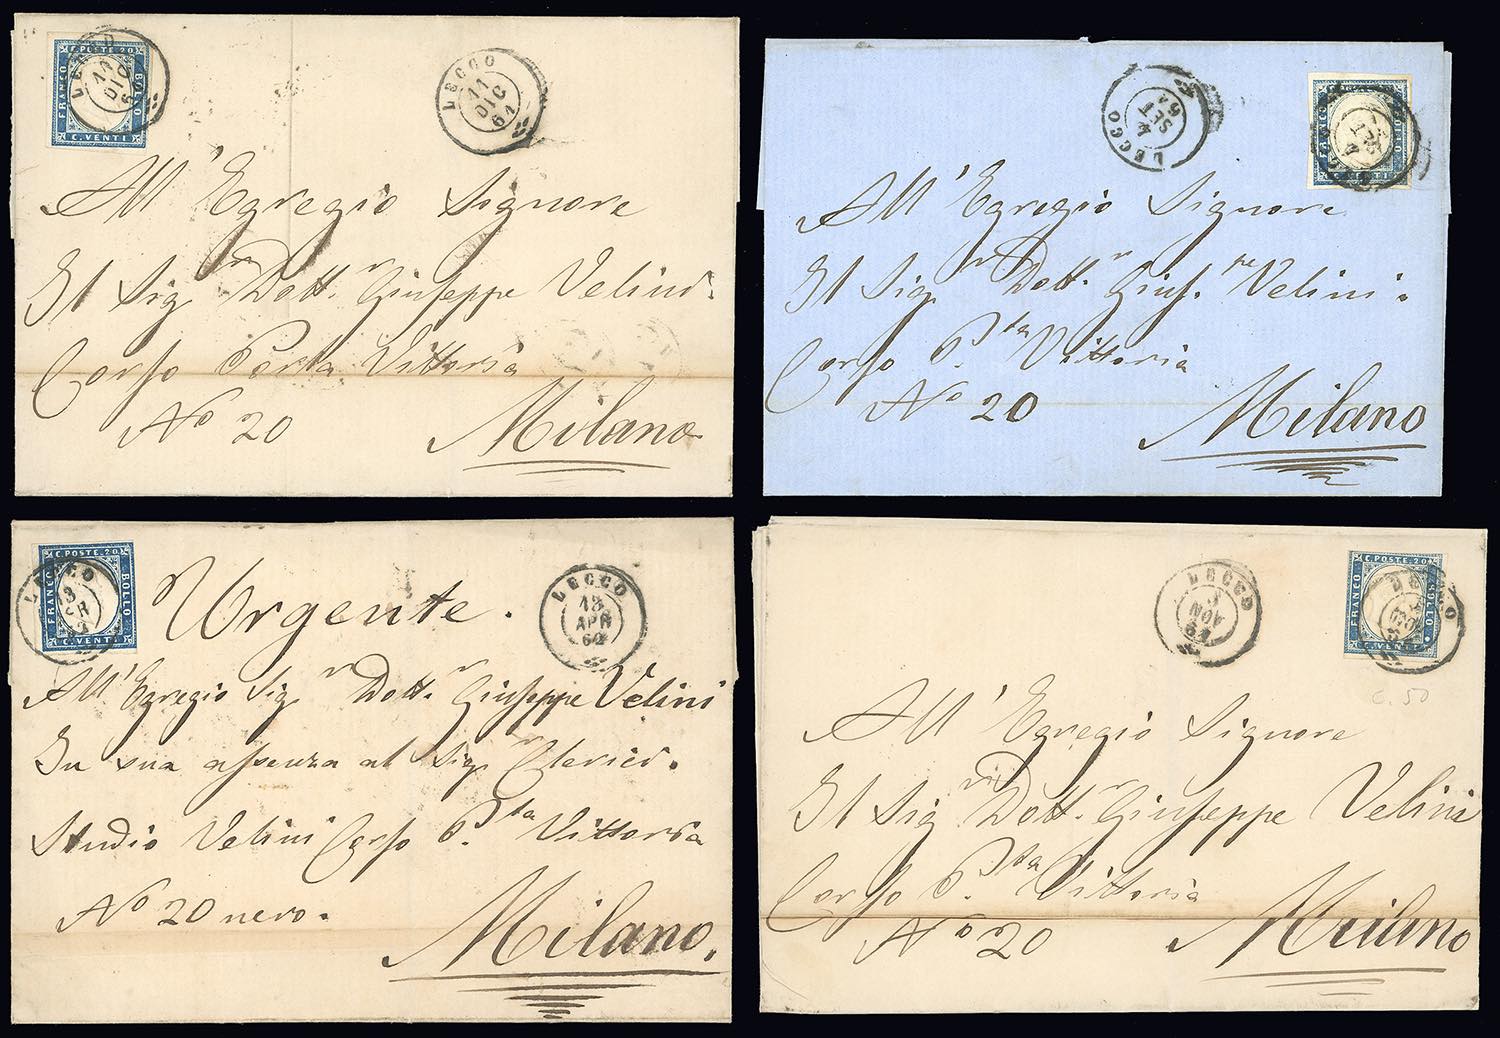 C. POSTE. 20
FRANCO
BOLLO
C. VENTI
LECCO
11
DIC
61
LECCO
11
DIC
61
All' Egregio Signore
Il Sig.r Dott.r Giuseppe Velini.
Corso Porta Vittoria
No 20
Milano
LECCO
SET
LECCO
SET
FRANCO
BOLLO
All' Egregio Signore
Il Sig.r Dott.r Gius.pe Velini.
Corso P.ta Vittoria
No 20
Milano
C. POSTE. 20
FRANCO
BOLLO
C. VENTI
LECCO
13
LECCO
13
APR
62
Urgente.
All' Egregio Sig.r Dott.r Giuseppe Velini
In sua assenza al Sig.r Clerici.
Studio Velini Corso P.ta Vittoria
No 20 nero.
Milano.
LECCO
NOV
61
C. POSTE. 20
FRANCO
BOLLO
C. VENTI
LECCO
C. 50
All' Egregio Signore
Il Sig.r Dott.r Giuseppe Velini
Corso P.ta Vittoria
No 20
Milano